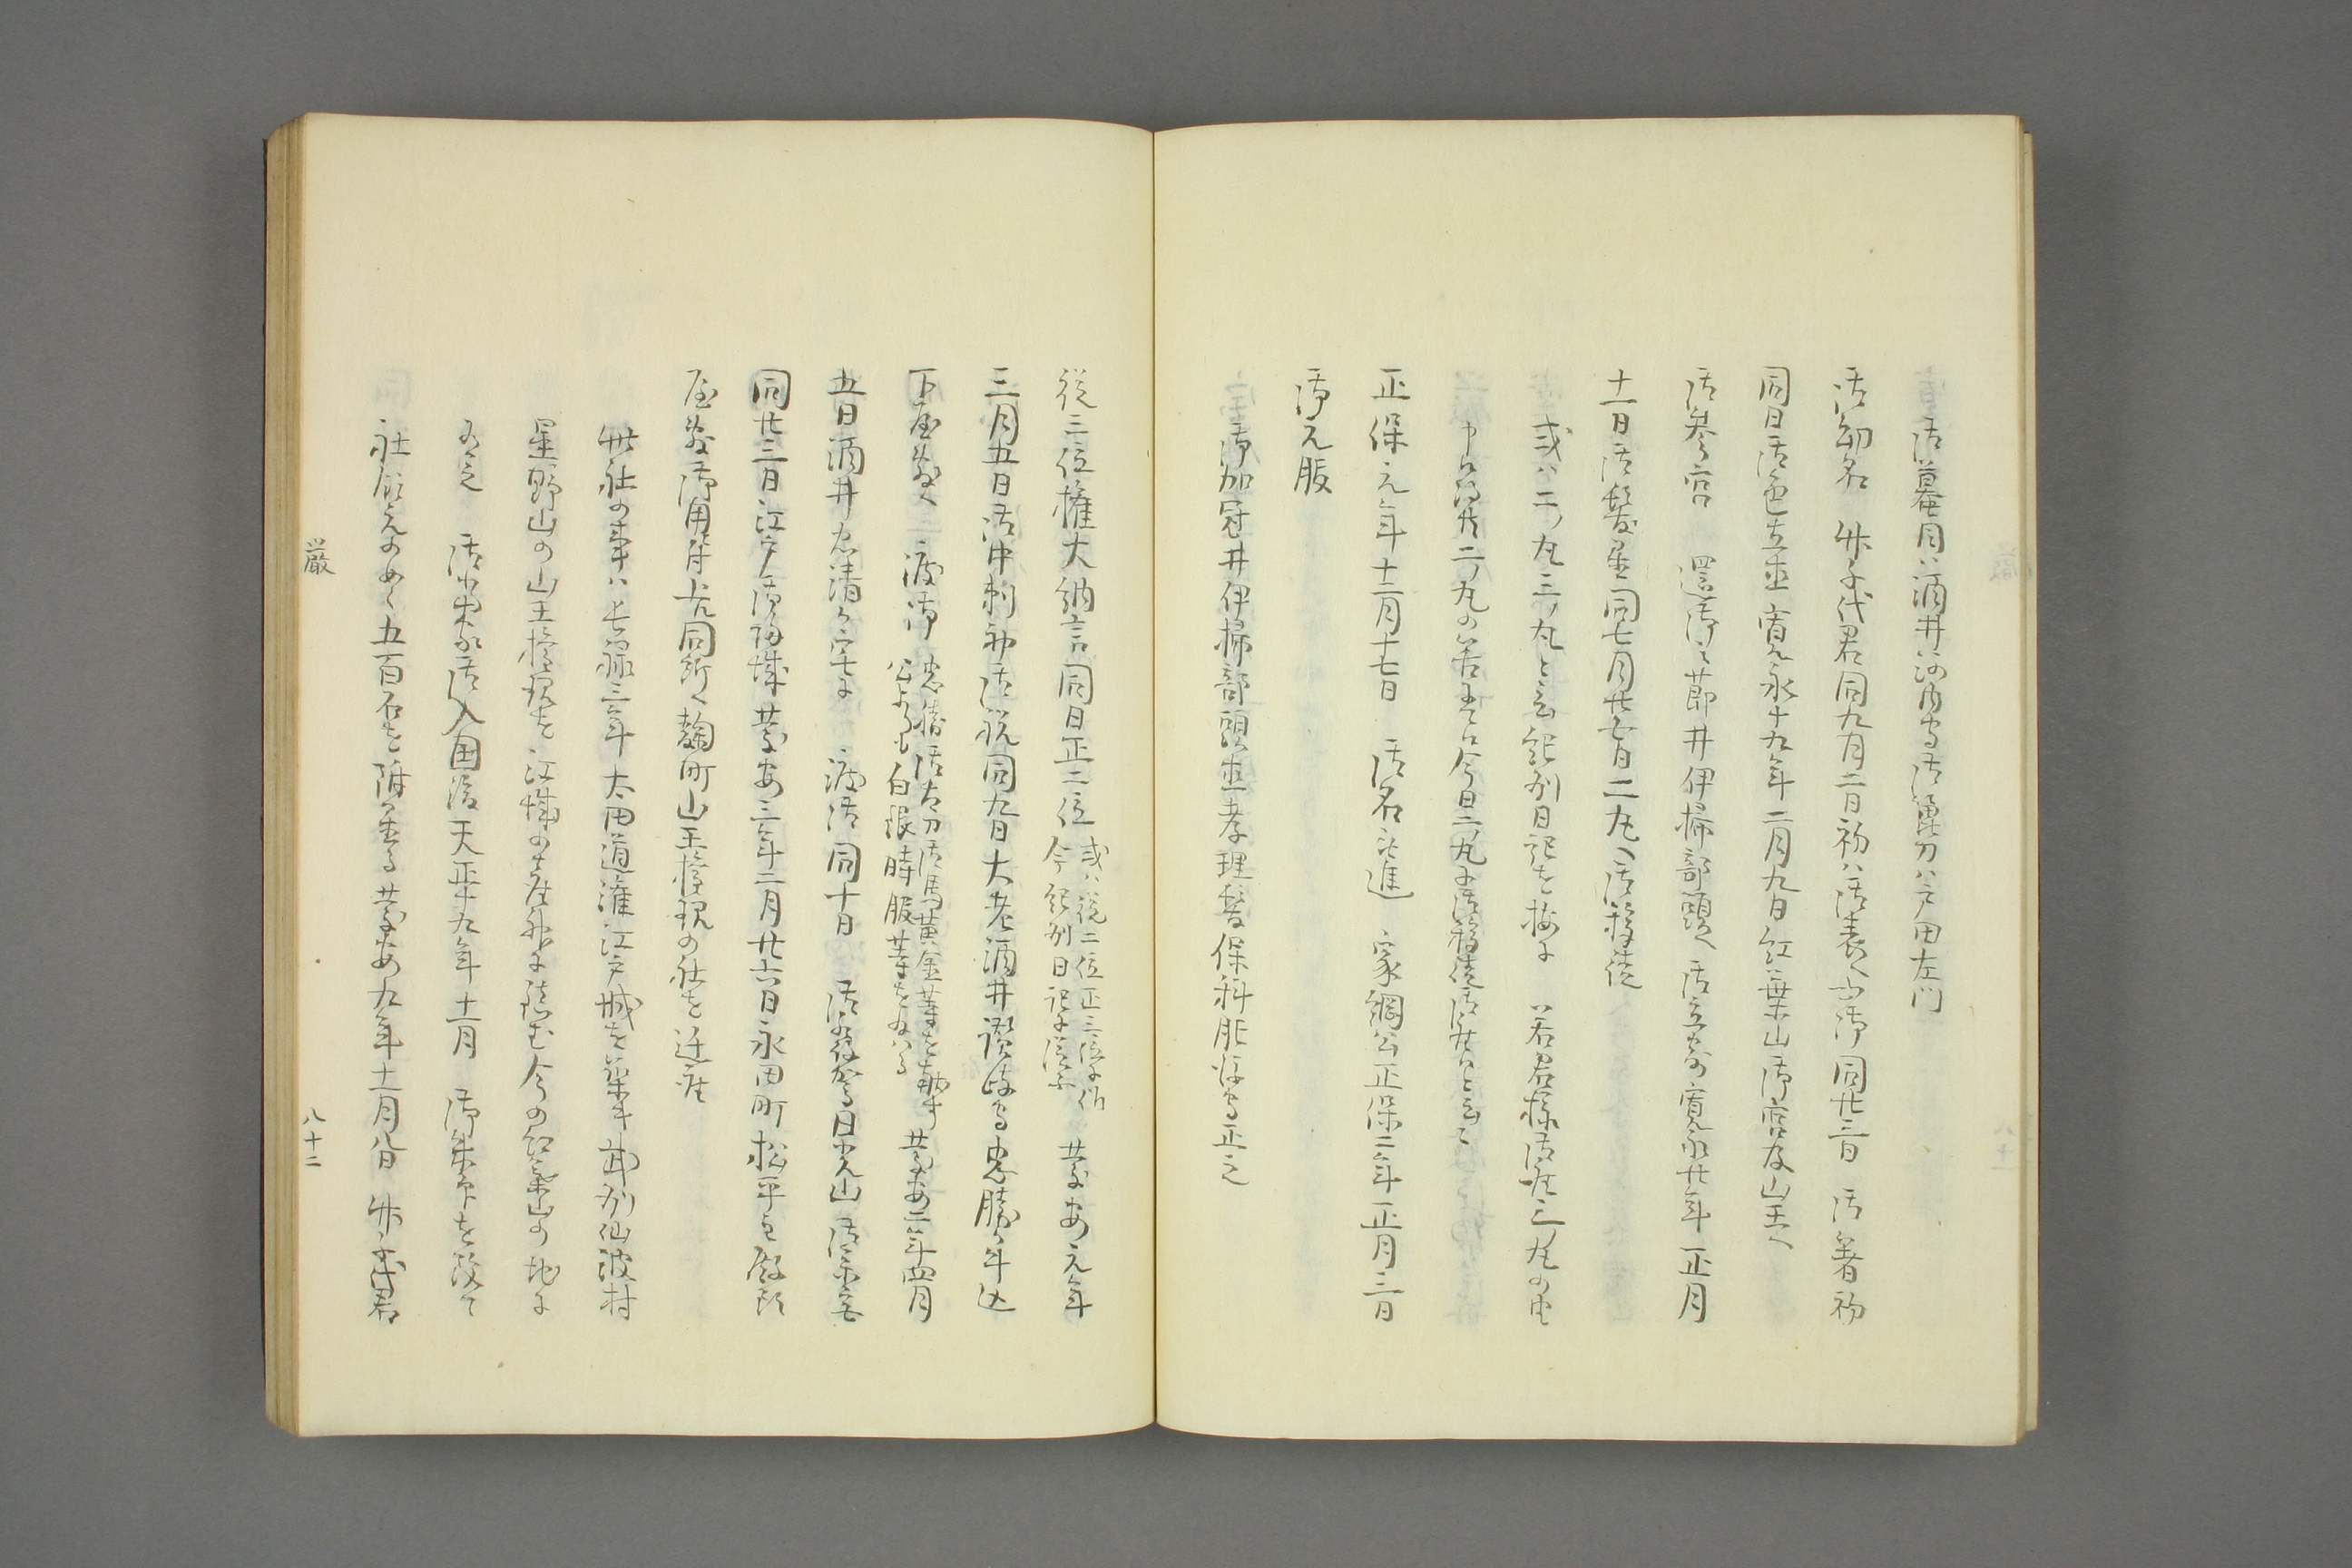 御蟇目ハ酒井河内守御箆刀ハ戸田左門
御幼名 竹千代君同九月二日初ハ御表ヘ出御同廿三日 御着初
同日御色直並寛永十九年二月九日紅葉山御宮及山王ヘ
御参宮 還御之節井伊掃部頭ヘ 御立寄寛永廿年正月
十一日御髪置同七月廿七日二丸ヘ御移徙
或ハ二ノ丸三ノ丸と云紀州日記を按に 若君様御座三ノ丸の由
申候得共二ノ丸の筈に候今日二ノ丸に御移徙御座候と云々
正保元年十二月十七日 御名乗進 家綱公正保二年正月三日
御元服
御加冠井伊掃部頭直孝理髪保科肥後守正之
従二位権大納言同日正二位
或ハ従二位正三位に作
今紀州日記に従ふ
慶安元年
三月五日御中剃初御祝同九日大老酒井讃岐守忠勝牛込
下屋敷ヘ 渡御
忠勝御太刀御馬黄金等を献す
公よりも白銀時服等を賜ハる
慶安二年四月
五日酒井忠清か宅に 渡御同十日 御発駕日光山御宗室
同廿三日江戸御帰城慶安三年二月廿六日永田町松平主殿頭
屋敷御用除上ケ同所ヘ麹町山王権現の社を遷座
此社の事ハ長禄三年太田道灌江戸城を築キ武州仙波村
星野山の山王権現を江城の産神に請む今の紅葉山の地に
有之 御当家御入国後天正十九年十一月 御朱印を改て
社領元のめく五百石を附せらる慶安九年十一月八日竹千代君
巌
八十二